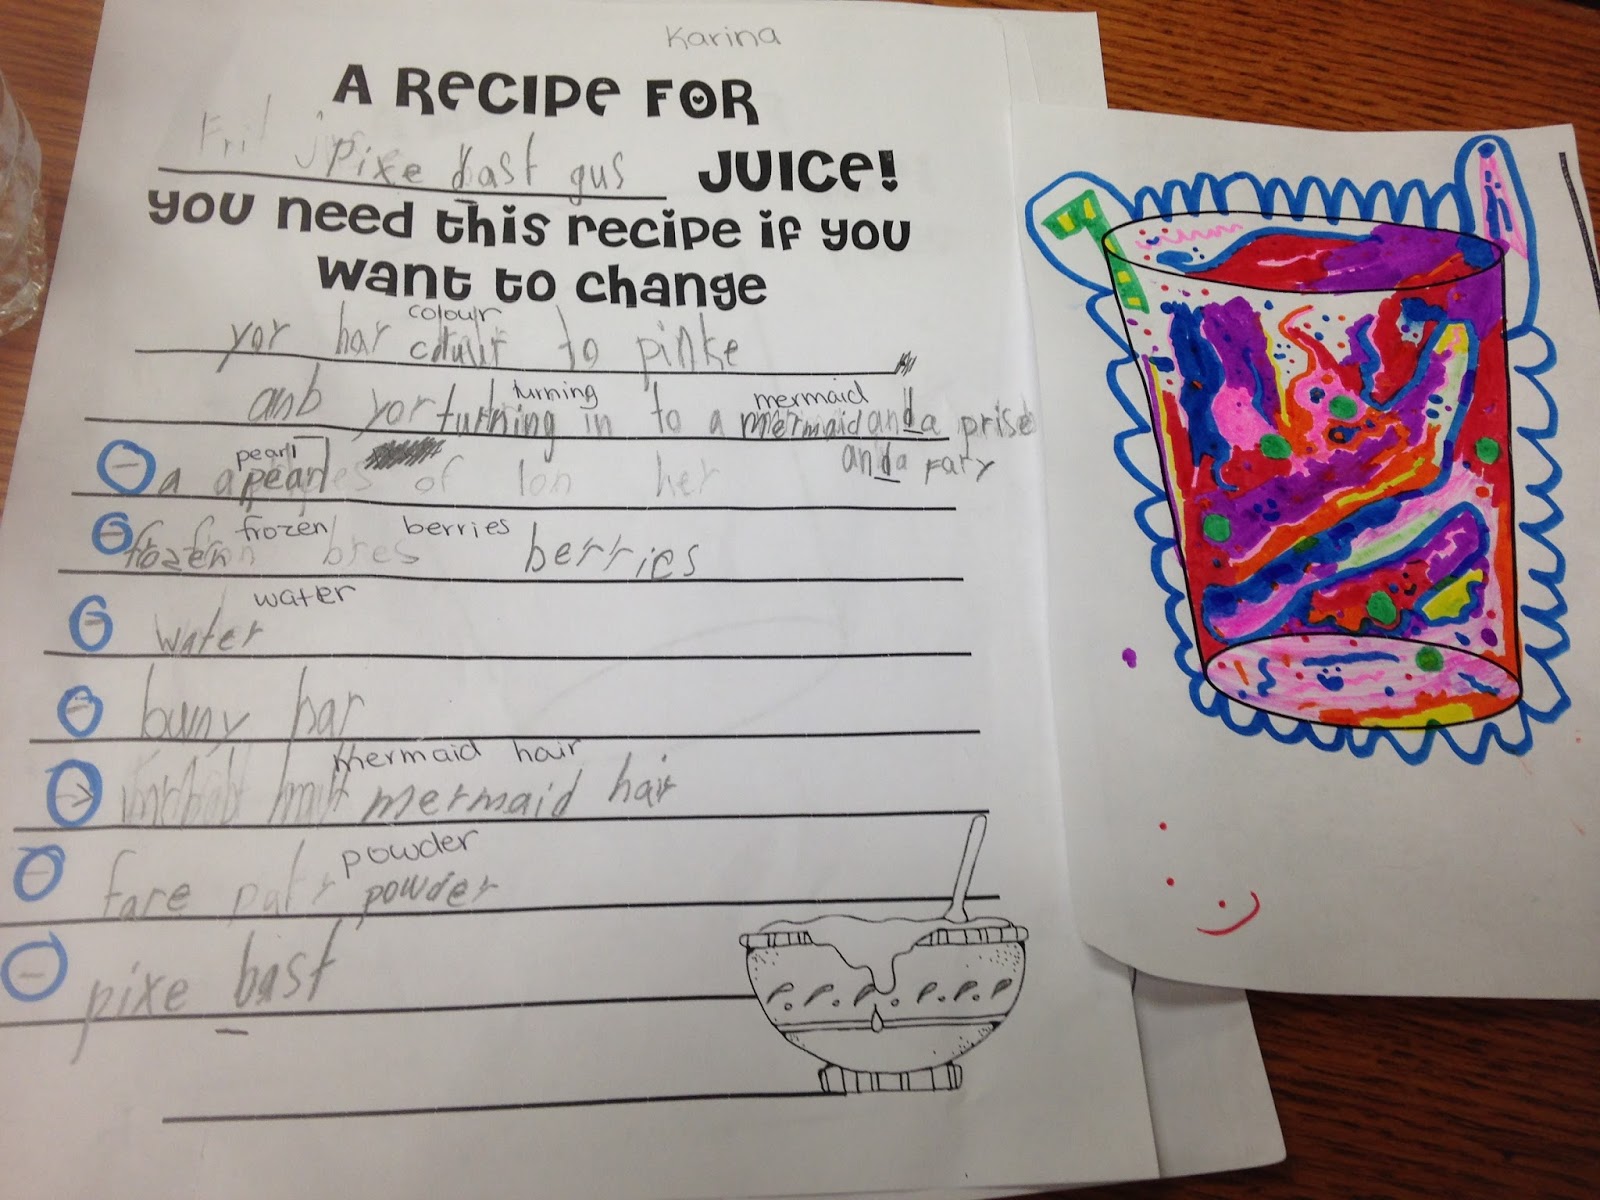 Karina
A Recipe for
pixe dast gus Juice!
you need this recipe if you
want to change
colour
yor har to pinke
turning mermaid
anb yor turning in to a mermaid and a prise
and a fary
pearl
a pearl of lon her
frozen berries
frozen bres berries
water
water
buny har
mermaid hair
mermaid hair
powder
fare powder
pixe bast